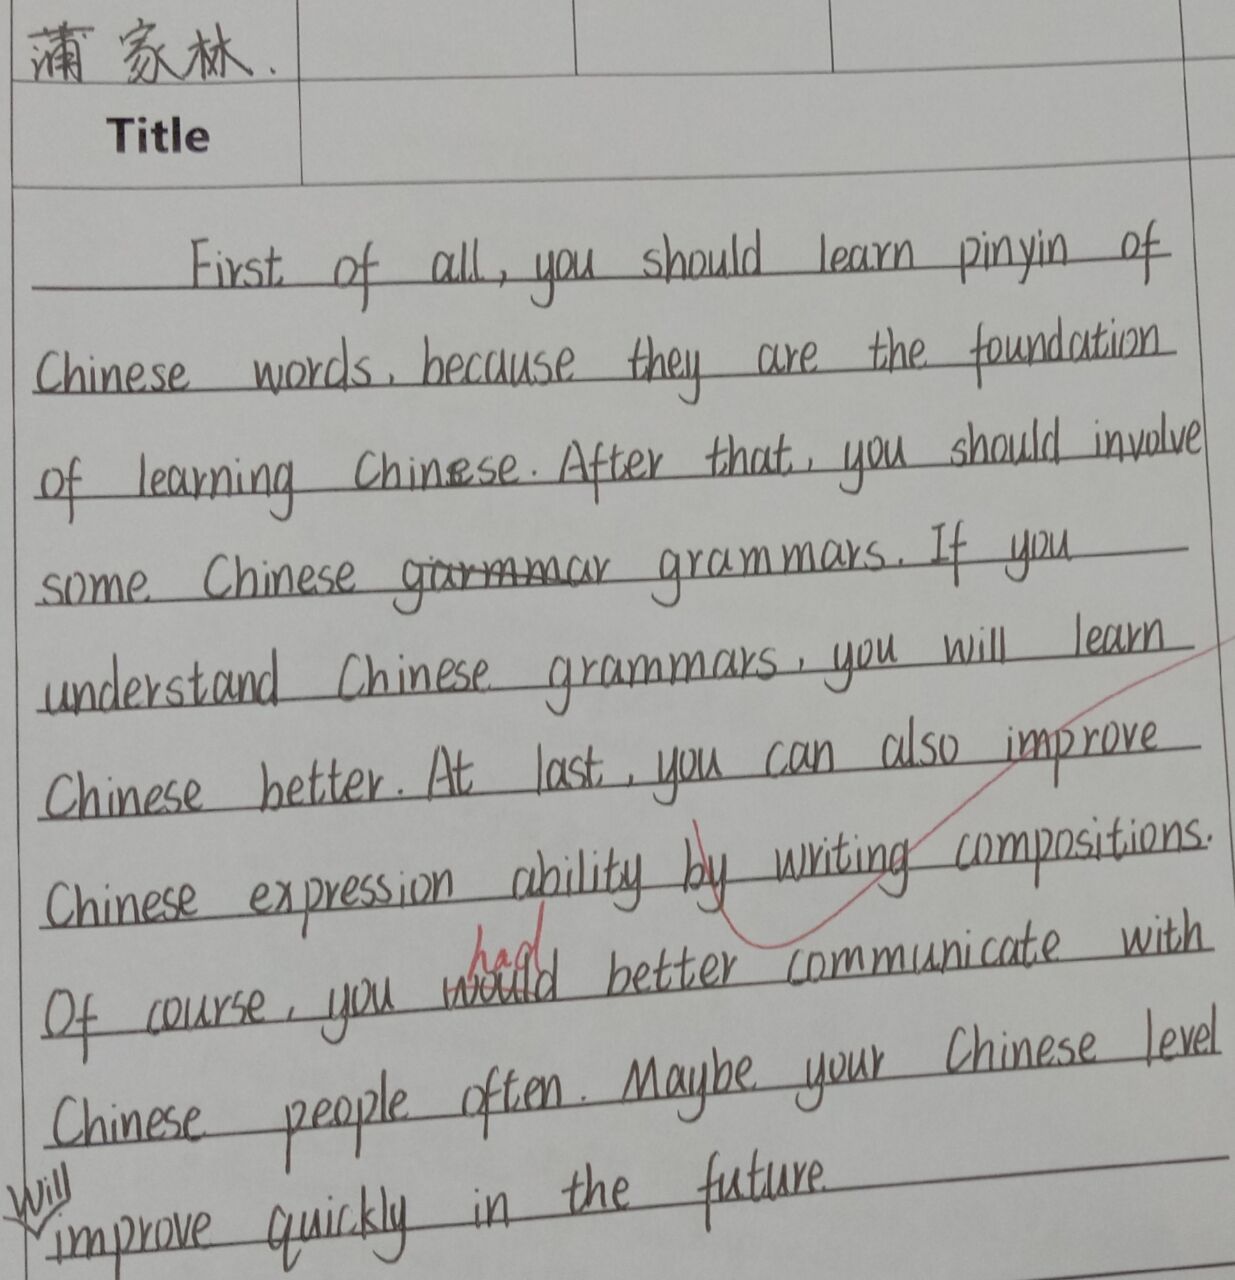 蒲家林.
Title
First of all, you should learn pinyin of
Chinese words, because they are the foundation
of learning Chinese. After that, you should involve
some Chinese garmmar grammars. If you
understand Chinese grammars, you will learn
Chinese better. At last, you can also improve
Chinese expression ability by writing compositions.
had
Of course, you would better communicate with
Chinese people often. Maybe your Chinese level
will
improve quickly in the future